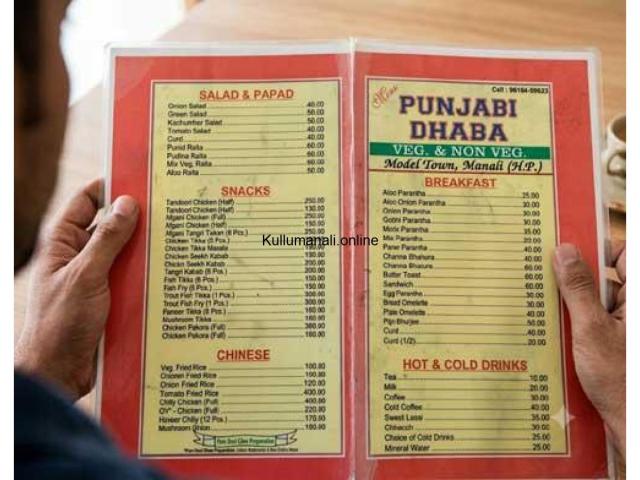 SALAD & PAPAD
Onion Salad 40.00
Green Salad 50.00
Kachumber Salad 50.00
Tomato Salad 40.00
Curd 40.00
Punid Raita 60.00
Pudina Raita 60.00
Mix Veg. Raita 60.00
Aloo Raita 50.00
SNACKS
Tandoori Chicken (Half) 250.00
Tandoori Chicken (Half) 130.00
Afgani Chicken (Full) 250.00
Afgani Chicken (Half) 150.00
Afgani Tangri Takan (6 Pcs.) 250.00
Chicken Tikka (5 Pcs.)
Chicken Tikka Masala
Chicken Seekh Kabab 130.00
Chickn Seekh Kabab 200.00
Tangri Kabab (6 Pcs.) 200.00
Fish Tikka (6 Pcs.) 150.00
Fish Fry (8 Pcs.) 150.00
Trout Fish Tikka (1 Pcs.) 300.00
Trout Fish Fry (1 Pcs.) 300.00
Paneer Tikka (8 Pcs.) 160.00
Mushroom Tikka 160.00
Chicken Pakora (Full) 360.00
Chicken Pakora (Full) 160.00
CHINESE
Veg. Fried Rice 100.80
Chicken Fried Rice 100.80
Onion Fried Rice 120.00
Tomato Fried Rice 400.00
Chilly Chicken (Full) 400.00
OV* - Chicken (Full) 220.80
Haneer Chilly (12 Pcs.) 170.00
Mushroom Ghion 180.80
Menu
Call : 96184-59623
PUNJABI
DHABA
VEG. & NON VEG.
Model Town, Manali (H.P.)
BREAKFAST
Aloo Parantha 25.00
Aloo Onion Parantha 30.00
Onion Parantha 30.00
Gobhi Parantha 30.00
Mirix Parantha 35.00
Mix Parantha 20.00
Paner Parantha 40.00
Channa Bhahura 40.00
Channa Bhatura 60.00
Butter Toast 60.00
Sandwich 60.00
Egg Parantha 30.00
Bread Omelette 30.00
Plaie Omelette 40.00
Pijn Bhurjee 50.00
Curd 40.00
Curd (1/2) 20.00
HOT & COLD DRINKS
Tea 10.00
Milk 20.00
Coffee 30.00
Cold Coffee 40.00
Sweet Lassi 35.00
Chhecch 30.00
Choice of Cold Drinks 25.00
Mineral Water 25.00
Kullumanali.online